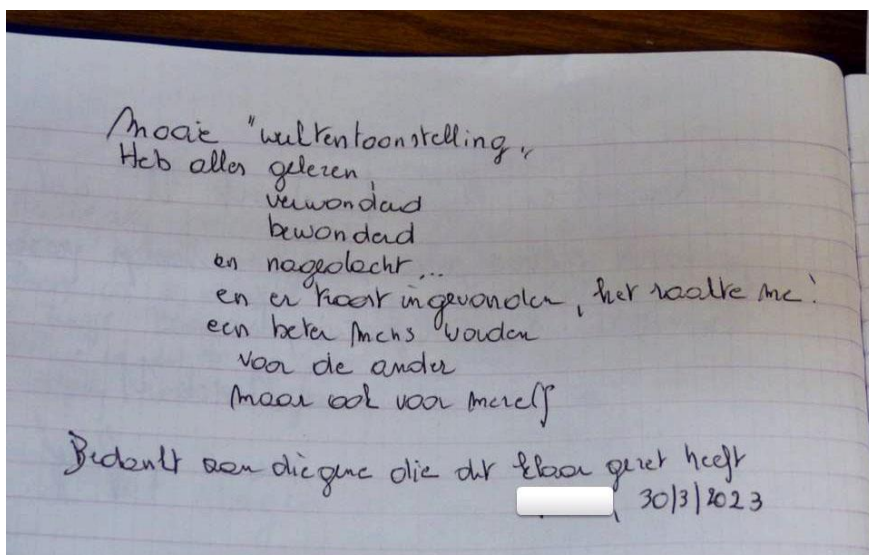 Mooie "weltentoonstelling"
Heb alles gelezen,
verwonderd
bewonderd
en nagedacht...
en er troost in gevonden, het raakte me!
een beter mens worden
voor de ander
maar ook voor mezelf
Bedankt aan diegene die dit klaar gezet heeft
, 30/3/2023